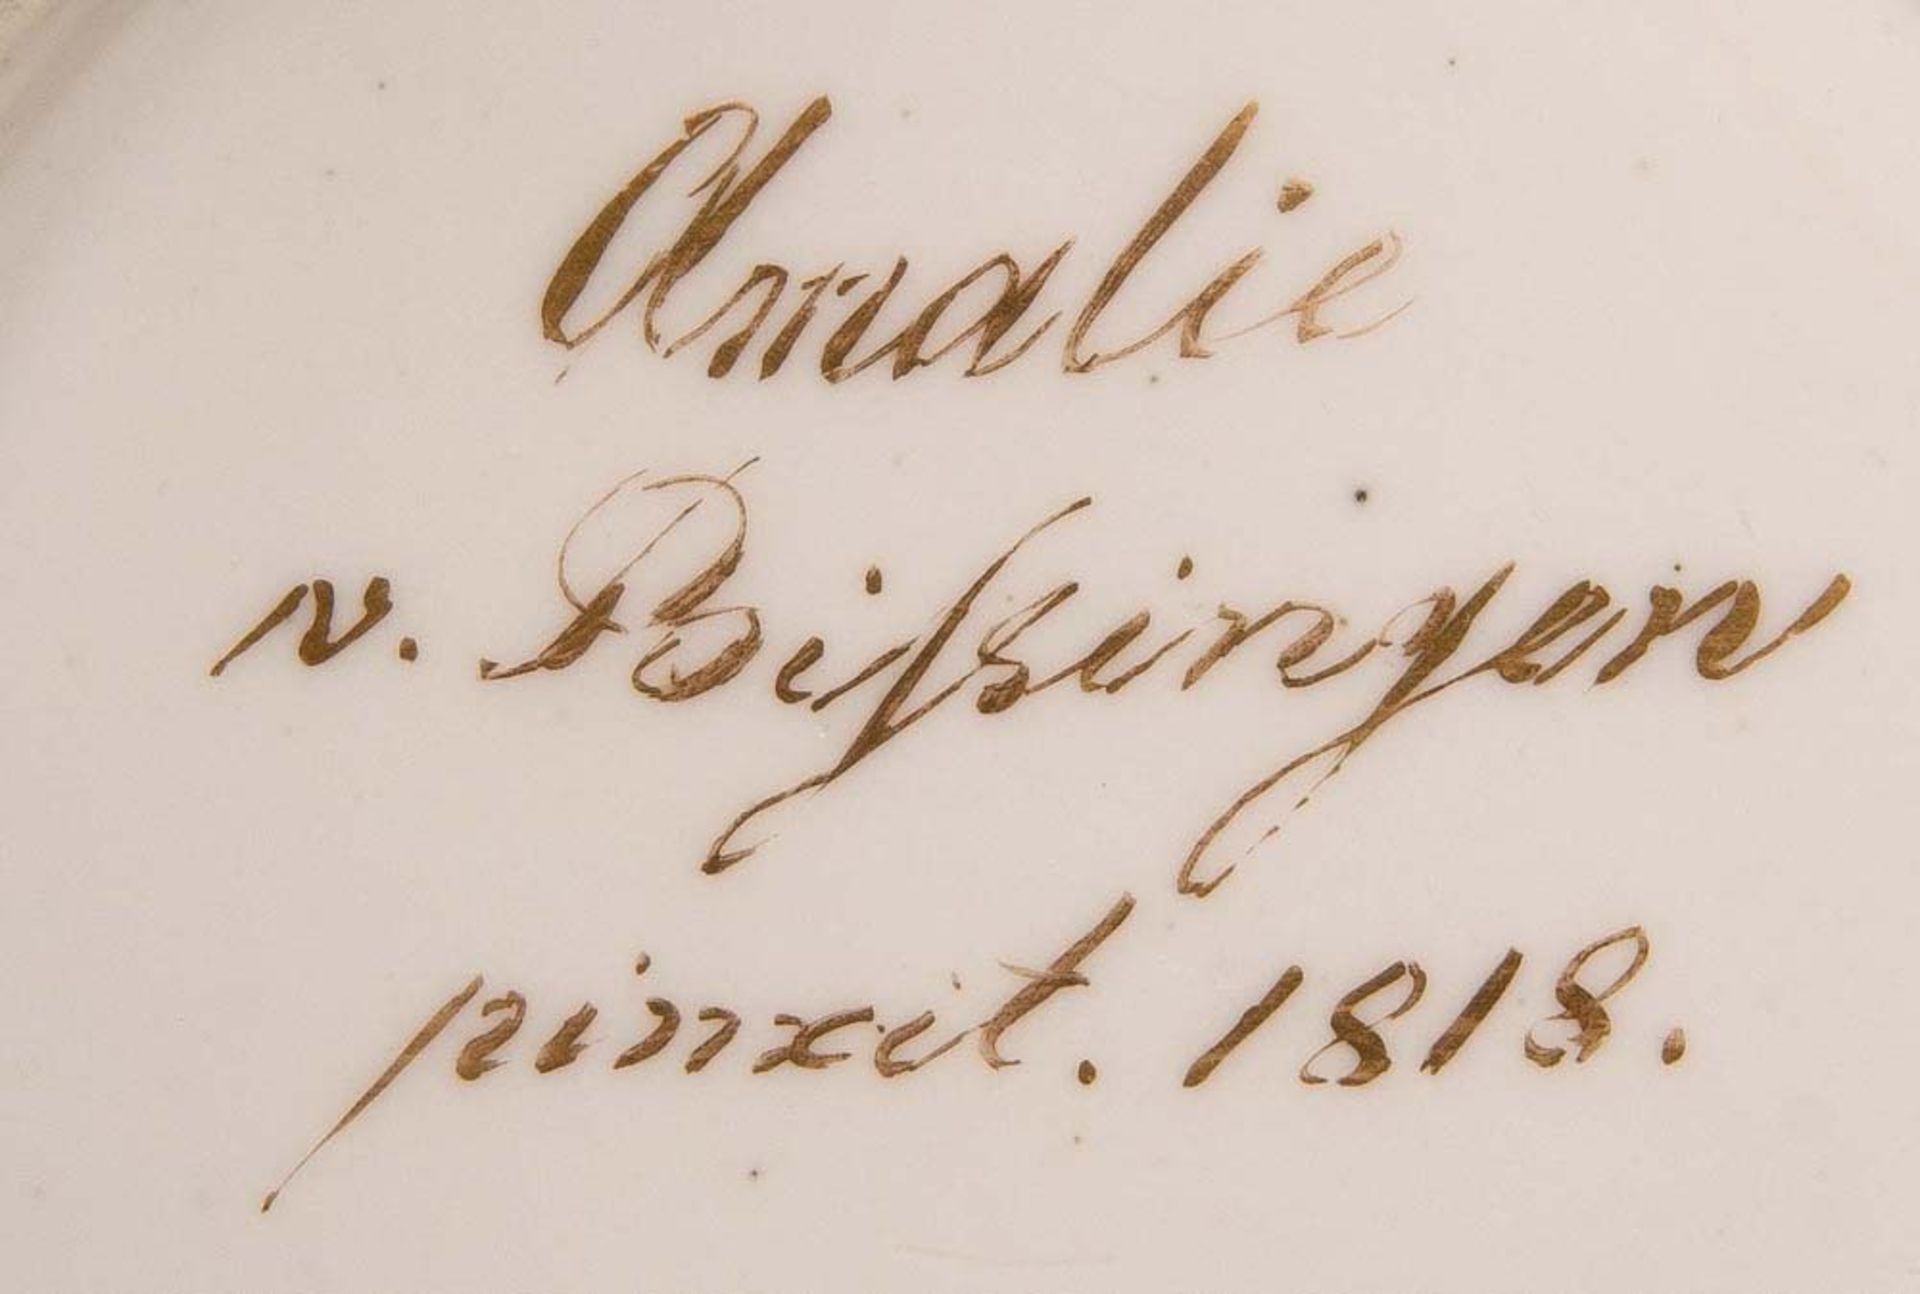 Amalie
v. Bißingen
pinxit. 1818.